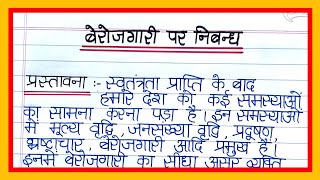 बेरोजगारी पर निबन्ध
प्रस्तावना :- स्वतंत्रता प्राप्ति के बाद
हमारे देश को कई समस्याओं
का सामना करना पड़ा है। इन समस्याओं
में मूल्य वृद्धि, जनसंख्या वृद्धि, प्रदूषण,
भ्रष्टाचार, बेरोजगारी आदि प्रमुख है।
इनमें बेरोजगारी का सीधा असर व्यक्ति